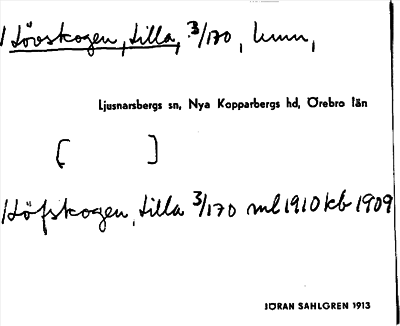 Hövskogen, Lilla, 3/170, hmn,
Ljusnarsbergs sn, Nya Kopparbergs hd, Örebro län
[ ]
Höfskogen, Lilla 3/170 ml 1910 kb 1909
JÖRAN SAHLGREN 1913